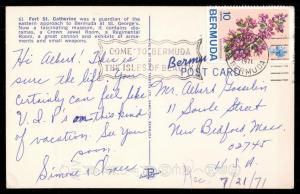 51 Fort St. Catherine was a guardian of the
eastern approach to Bermuda at St. George's.
Now a fascinating museum, it contains dio-
ramas, a Crown Jewel Room, a Regimental
Room, a great cannon and exhibits of arma-
ments and small weapons.
COME TO BERMUDA
THE ISLES OF
BERMUDA
10
1971
BERMUDA
POST CARD
Hi Albert! This is
sure the life! You
Certainly can feel like
V.I.P's on this kind
of vacation. See you
soon.
Simone & Omer
Mr. Albert Gosselin
11 Soule Street
New Bedford, Mass.
02745
U.S.A.
Rec. 7/21/71